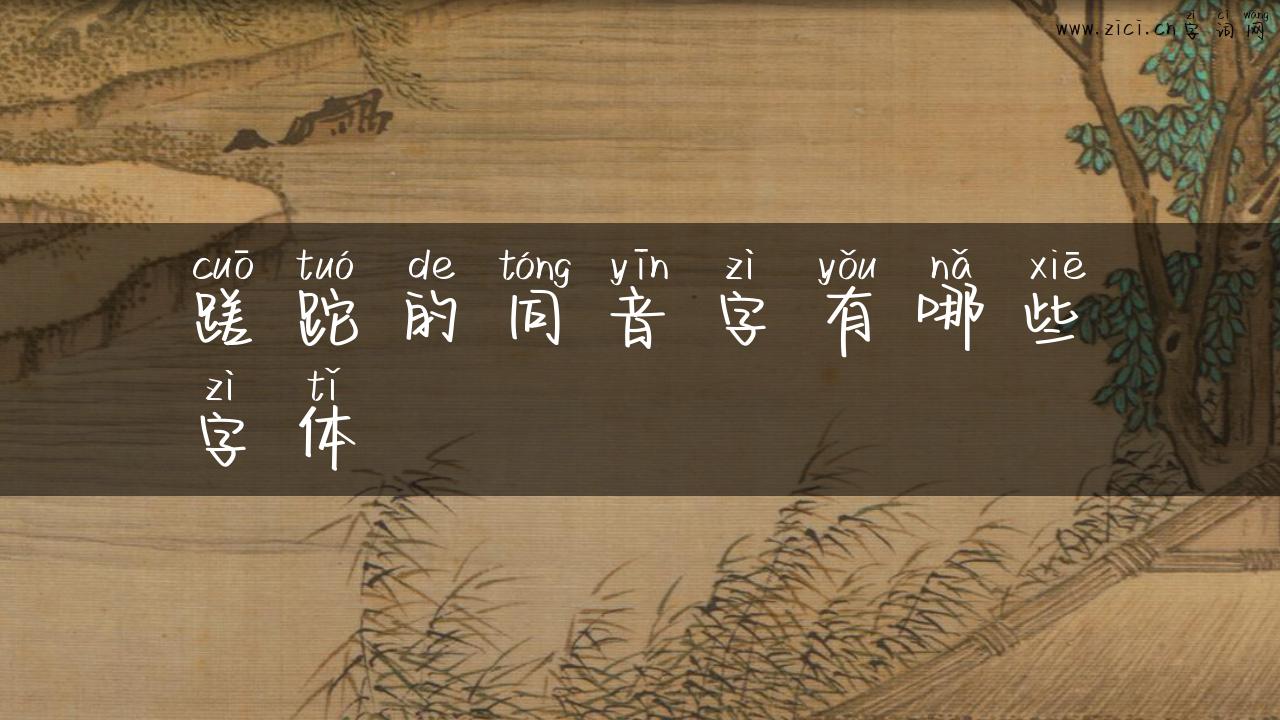 zì cí wǎng
www.zici.cn 字 词 网
cuō tuó de tóng yīn zì yǒu nǎ xiē
蹉 跎 的 同 音 字 有 哪 些
zì tǐ
字 体